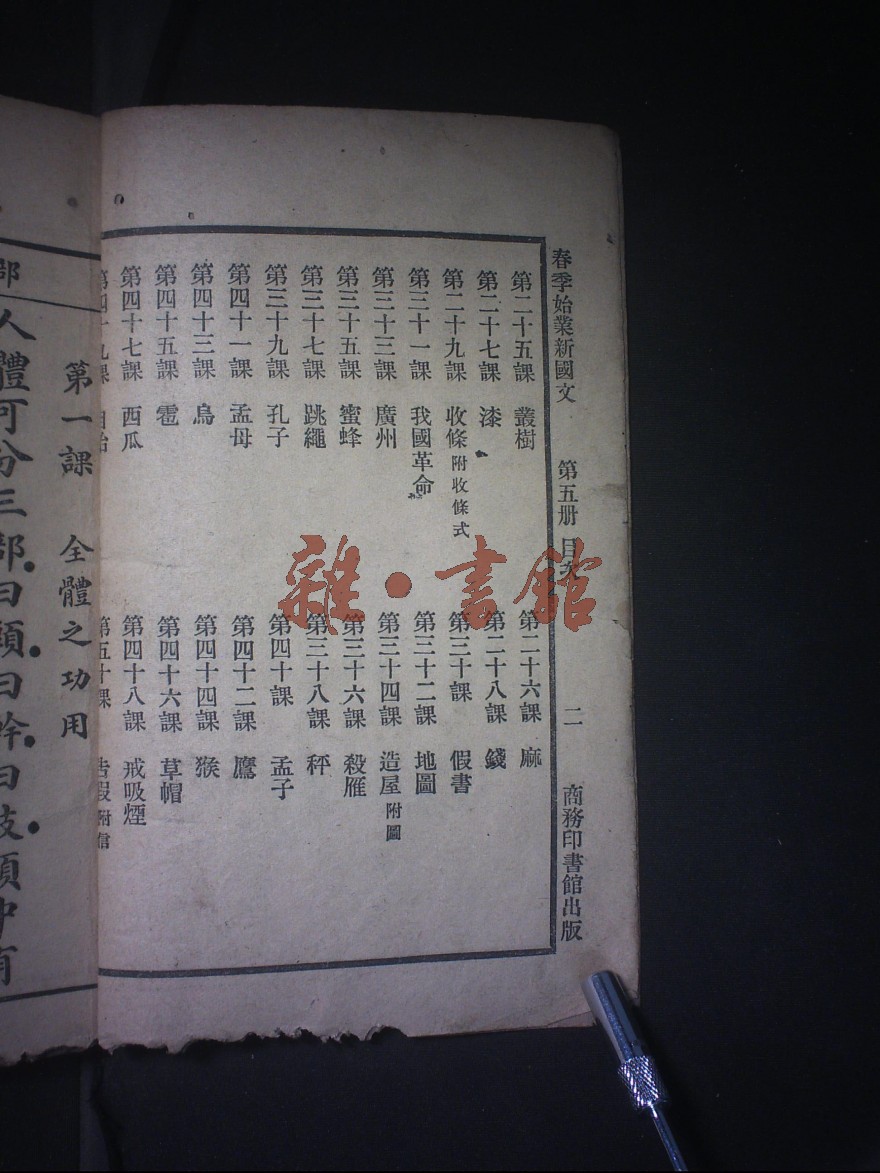 春季始業新國文 第五册 目 二 商務印書館出版
第二十五課 叢樹 第二十六課 麻
第二十七課 漆 第二十八課 錢
第二十九課 收條附收條式 第三十課 假書
第三十一課 我國革命 第三十二課 地圖
第三十三課 廣州 第三十四課 造屋附圖
第三十五課 蜜蜂 第三十六課 殺雁
第三十七課 跳繩 第三十八課 秤
第三十九課 孔子 第四十課 孟子
第四十一課 孟母 第四十二課 鷹
第四十三課 烏 第四十四課 猴
第四十五課 雹 第四十六課 草帽
第四十七課 西瓜 第四十八課 戒吸煙
第四十九課 自治 第五十課 告假附信
第一課 全體之功用
人體可分三部曰頭曰幹曰肢頭中有
雜·書館